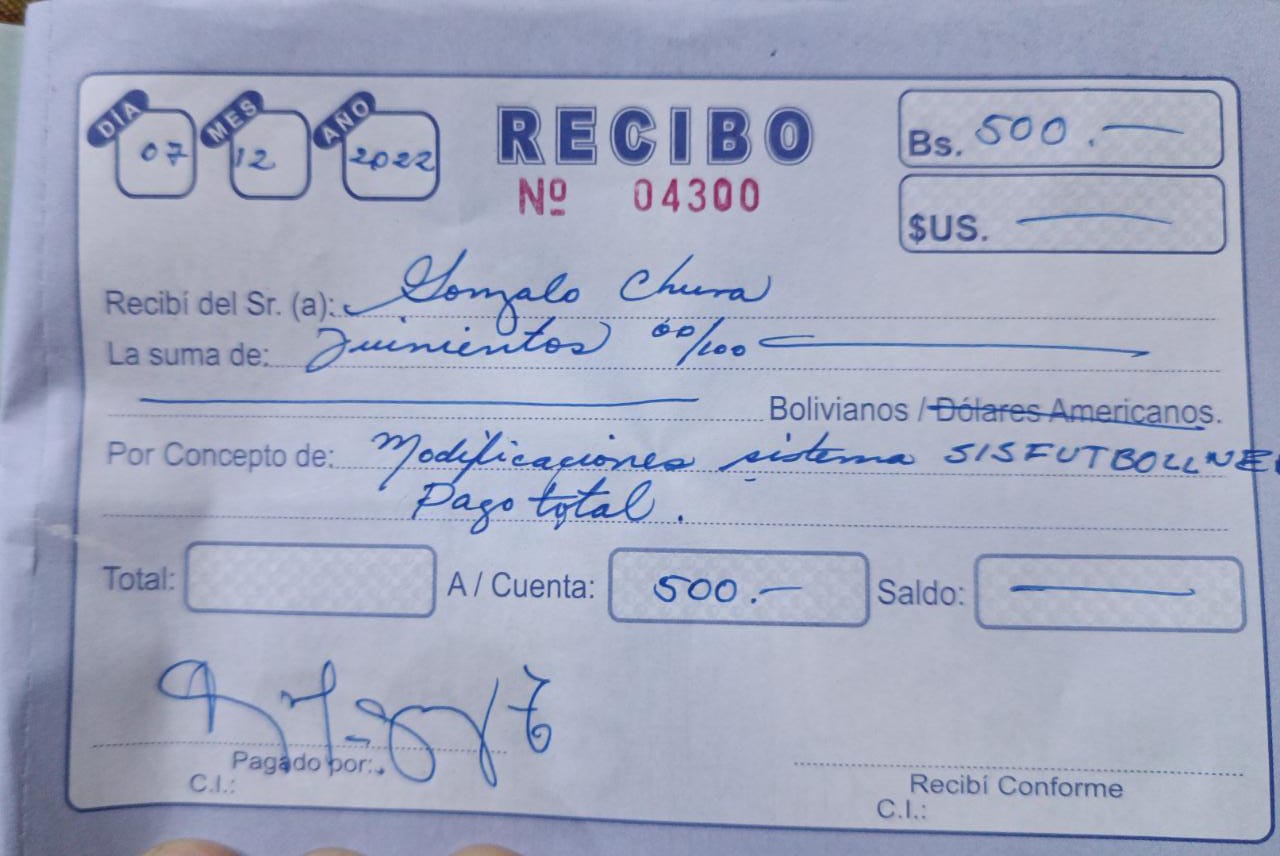 DIA 07 MES 12 AÑO 2022
RECIBO
Nº 04300
Bs. 500.—
$US. —
Recibí del Sr. (a): Gonzalo Chura
La suma de: Quinientos 00/100
Bolivianos / Dólares Americanos.
Por Concepto de: Modificaciones sistema SISFUTBOLLNE
Pago total.
Total: A / Cuenta: 500.— Saldo: —
Pagado por:
C.I.:
Recibí Conforme
C.I.: